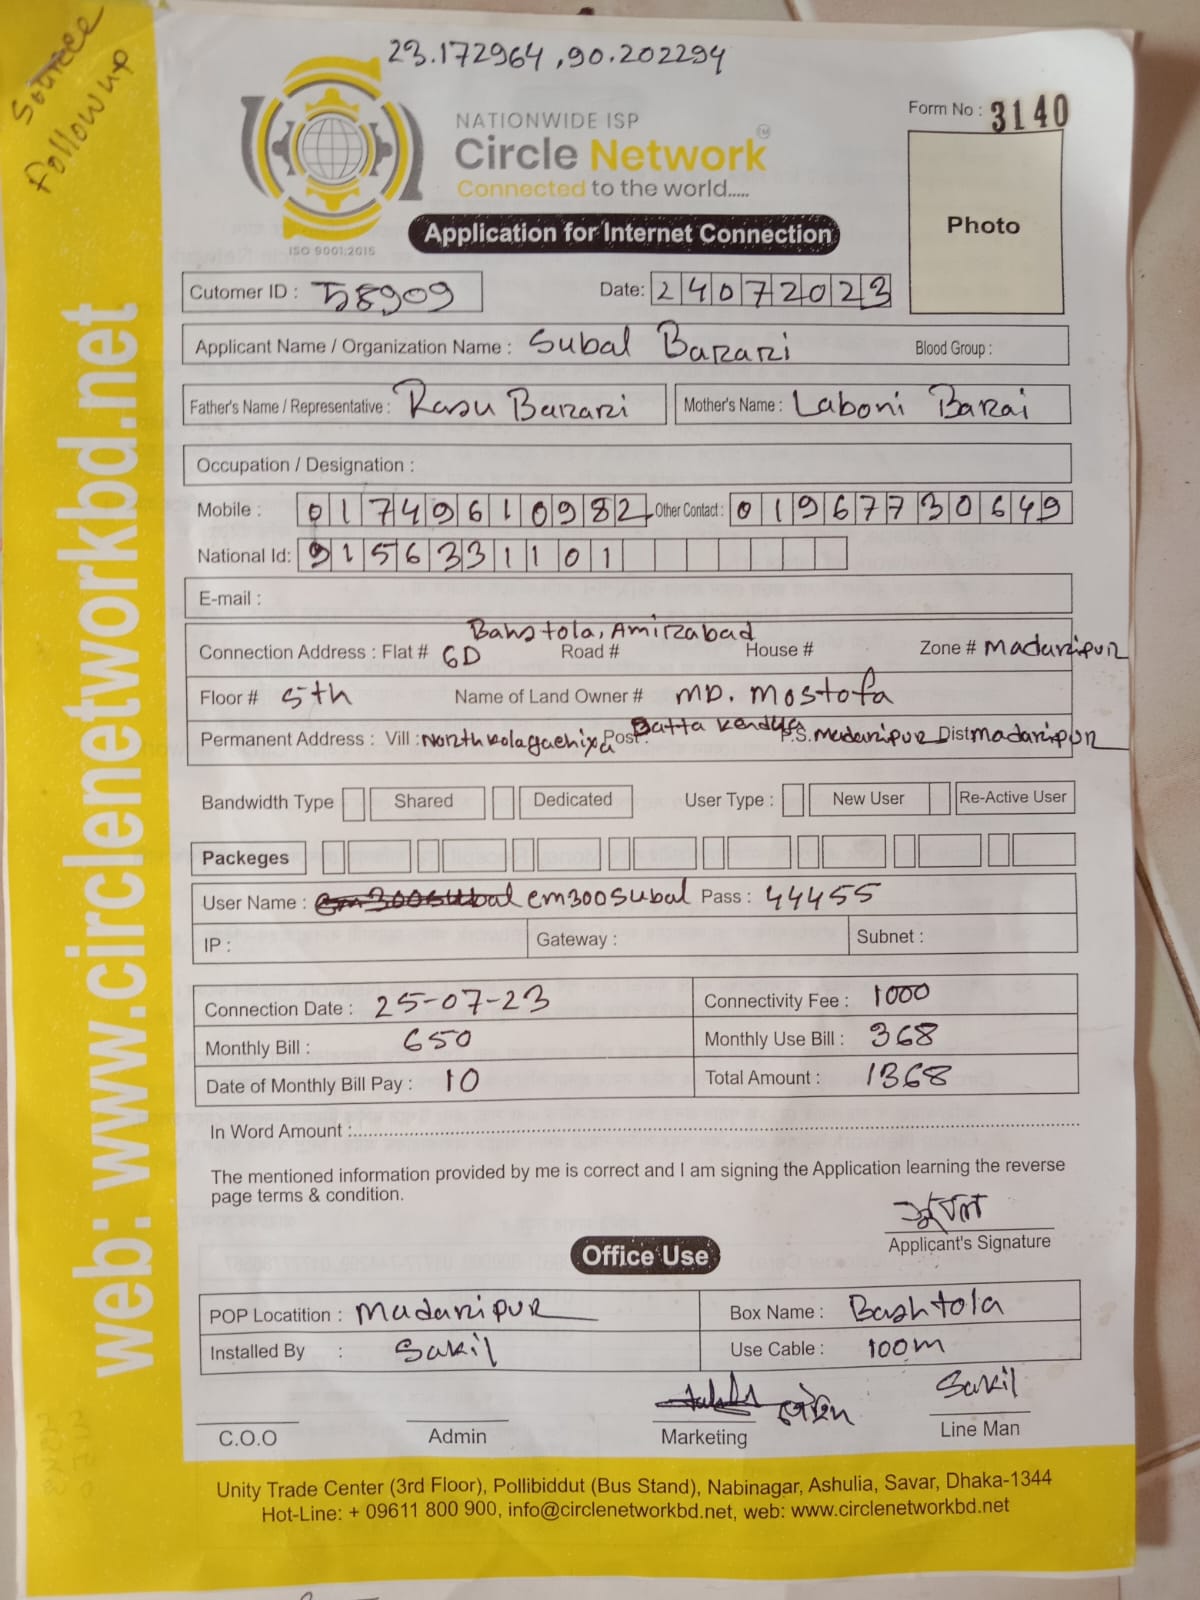 Source
Followup
23.172964,90.202294
NATIONWIDE ISP
Circle Network
Connected to the world.....
ISO 9001:2015
Form No : 3140
Photo
Application for Internet Connection
Cutomer ID : 58909
Date: 24072023
Applicant Name / Organization Name : Subal Barari Blood Group :
Father's Name / Representative : Rasu Barari Mother's Name : Laboni Barai
Occupation / Designation :
Mobile : 01749610982 Other Contact : 01967730649
National Id: 9156331101
E-mail :
Bahstola, Amirabad
Connection Address : Flat # 6D Road # House # Zone # Madaripur
Floor # 5th Name of Land Owner # MD. Mostofa
Permanent Address : Vill : North kolagachixa Post : Batta Kendua P.S. Madaripur Dist Madaripur
Bandwidth Type Shared Dedicated User Type : New User Re-Active User
Packeges
User Name : em300subal Pass : 44455
IP : Gateway : Subnet :
Connection Date : 25-07-23 Connectivity Fee : 1000
Monthly Bill : 650 Monthly Use Bill : 368
Date of Monthly Bill Pay : 10 Total Amount : 1368
In Word Amount :
The mentioned information provided by me is correct and I am signing the Application learning the reverse
page terms & condition.
সুবল
Applicant's Signature
Office Use
POP Locatition : Madaripur Box Name : Bashtola
Installed By : Sakil Use Cable : 100m
Sakil
C.O.O Admin Marketing Line Man
Unity Trade Center (3rd Floor), Pollibiddut (Bus Stand), Nabinagar, Ashulia, Savar, Dhaka-1344
Hot-Line: + 09611 800 900, info@circlenetworkbd.net, web: www.circlenetworkbd.net
web: www.circlenetworkbd.net